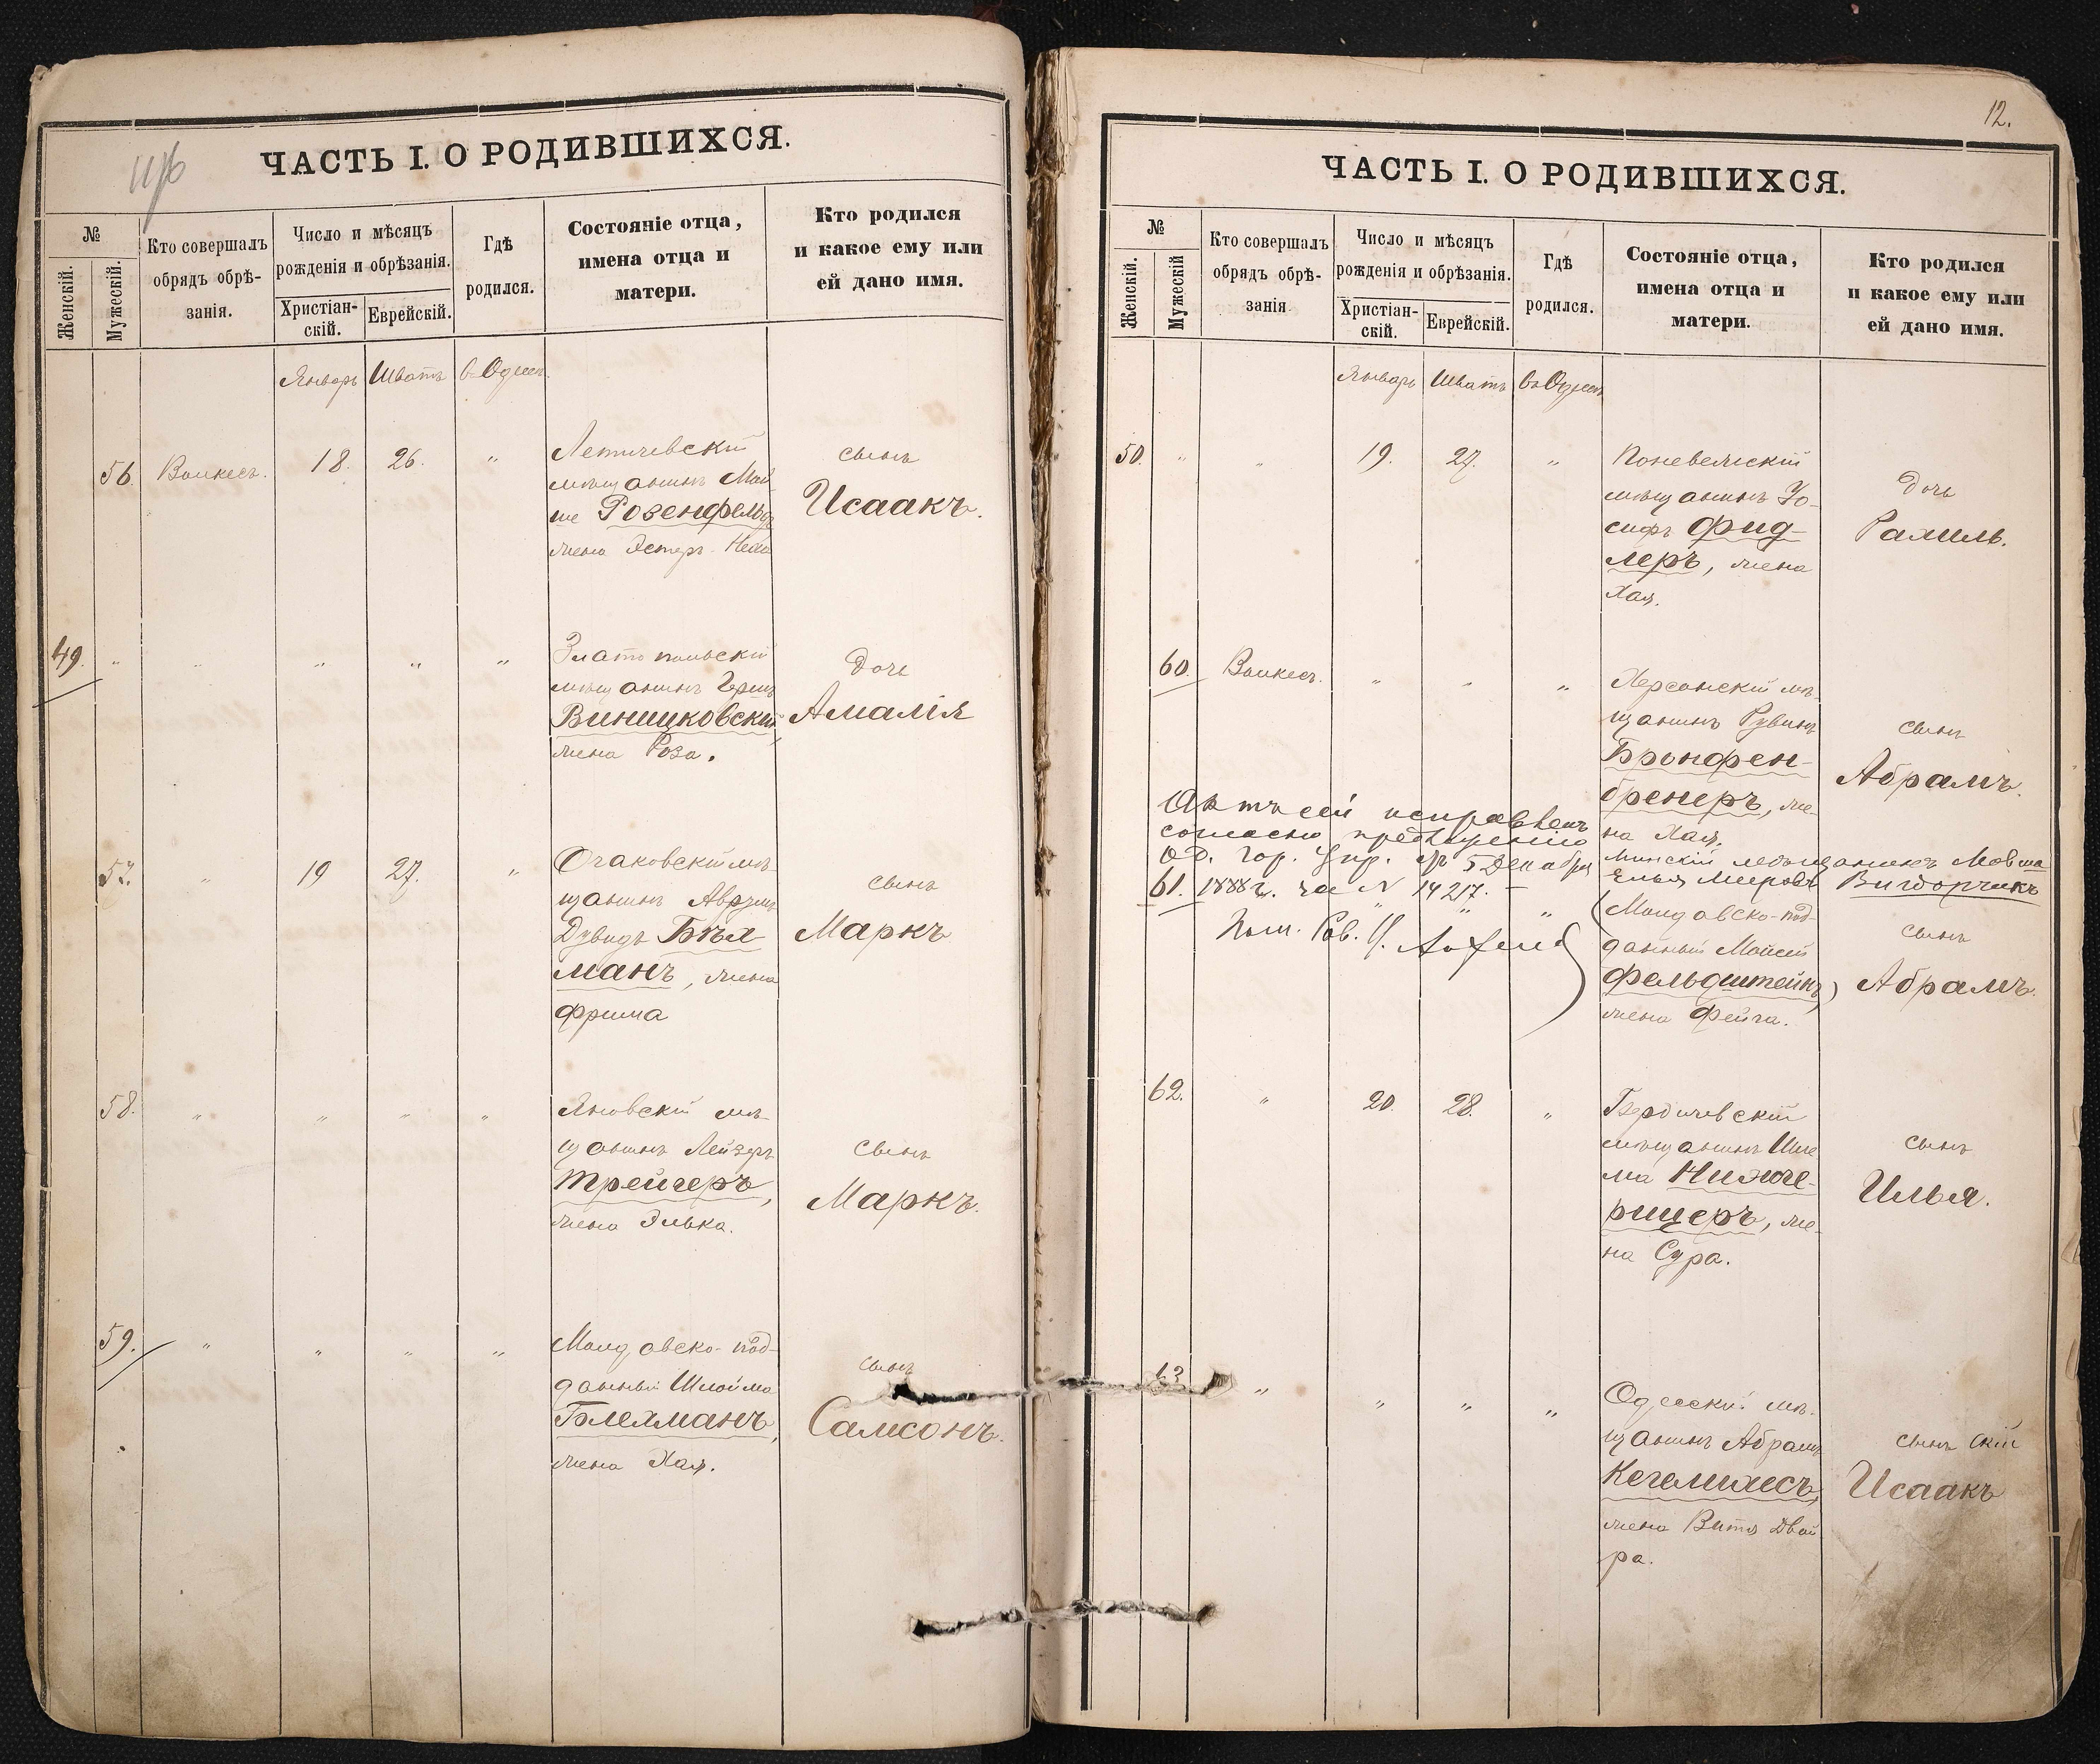 ЧАСТЬ I. О РОДИВШИХСЯ.
№
Женскій.
Мужескій.
Кто совершалъ
обрядъ обрѣ-
занія.
Число и мѣсяцъ
рожденія и обрѣзанія.
Христіан-
скій.
Еврейскій.
Гдѣ
родился.
Состояніе отца,
имена отца и
матери.
Кто родился
и какое ему или
ей дано имя.
Январь Шватъ въ Одессѣ
56. 18. 26. "
Летичевскій
мѣщанинъ Мой
ше Розенфельдъ
жена Эстеръ
сынъ
Исаакъ.
49. " " " " "
Златопольскій
мѣщанинъ Гершъ
Винниковскій,
жена Роза.
дочь
Амалія
57. " 19 27. "
Очаковскій мѣ-
щанинъ Аврумъ
Дувидъ Бѣх
манъ, жена
Фрима
сынъ
Маркъ
58. " " " "
Яновскій мѣ-
щанинъ Лейзеръ
Трейгеръ,
жена Элька.
сынъ
Маркъ.
59. " " " "
Молдавско-под-
данный Шлойма
Блехманъ,
жена Хая.
сынъ
Самсонъ.
12.
ЧАСТЬ I. О РОДИВШИХСЯ.
№
Женскій.
Мужескій
Кто совершалъ
обрядъ обрѣ-
занія
Число и мѣсяцъ
рожденія и обрѣзанія.
Христіан-
скій.
Еврейскій.
Гдѣ
родился.
Состояніе отца,
имена отца и
матери.
Кто родился
и какое ему или
ей дано имя.
Январь Шватъ въ Одессѣ
50. " " 19. 27. "
Поневежскій
мѣщанинъ Іо-
сифъ Фид-
леръ, жена
Хая.
дочь
Рахиль.
60. " " "
Херсонскій мѣ-
щанинъ Рувинъ
Бронфен-
бренеръ, же-
на Хая.
сынъ
Абрамъ.
Актъ сей исправленъ
согласно предложенію
Од. Гор. Упр. отъ 5 Декабря
1888 г. за N 14217. –
Пом. Рав.
Минскій мѣщанинъ Мовша
Елья Мееровъ Вигдорчикъ
61. " " "
(Молдавско-под-
данный Мойсей
Фельдштейнъ,)
жена Фейга.
сынъ
Абрамъ.
62. " 20. 28. "
Бердичевскій
мѣщанинъ Шле
ма Нихче-
рицеръ, же-
на Сура.
сынъ
Илья.
63 " " " "
Одесскій мѣ-
щанинъ Абрамъ
Кегелихесъ,
жена Витя Двой
ра.
сынъ
Исаакъ